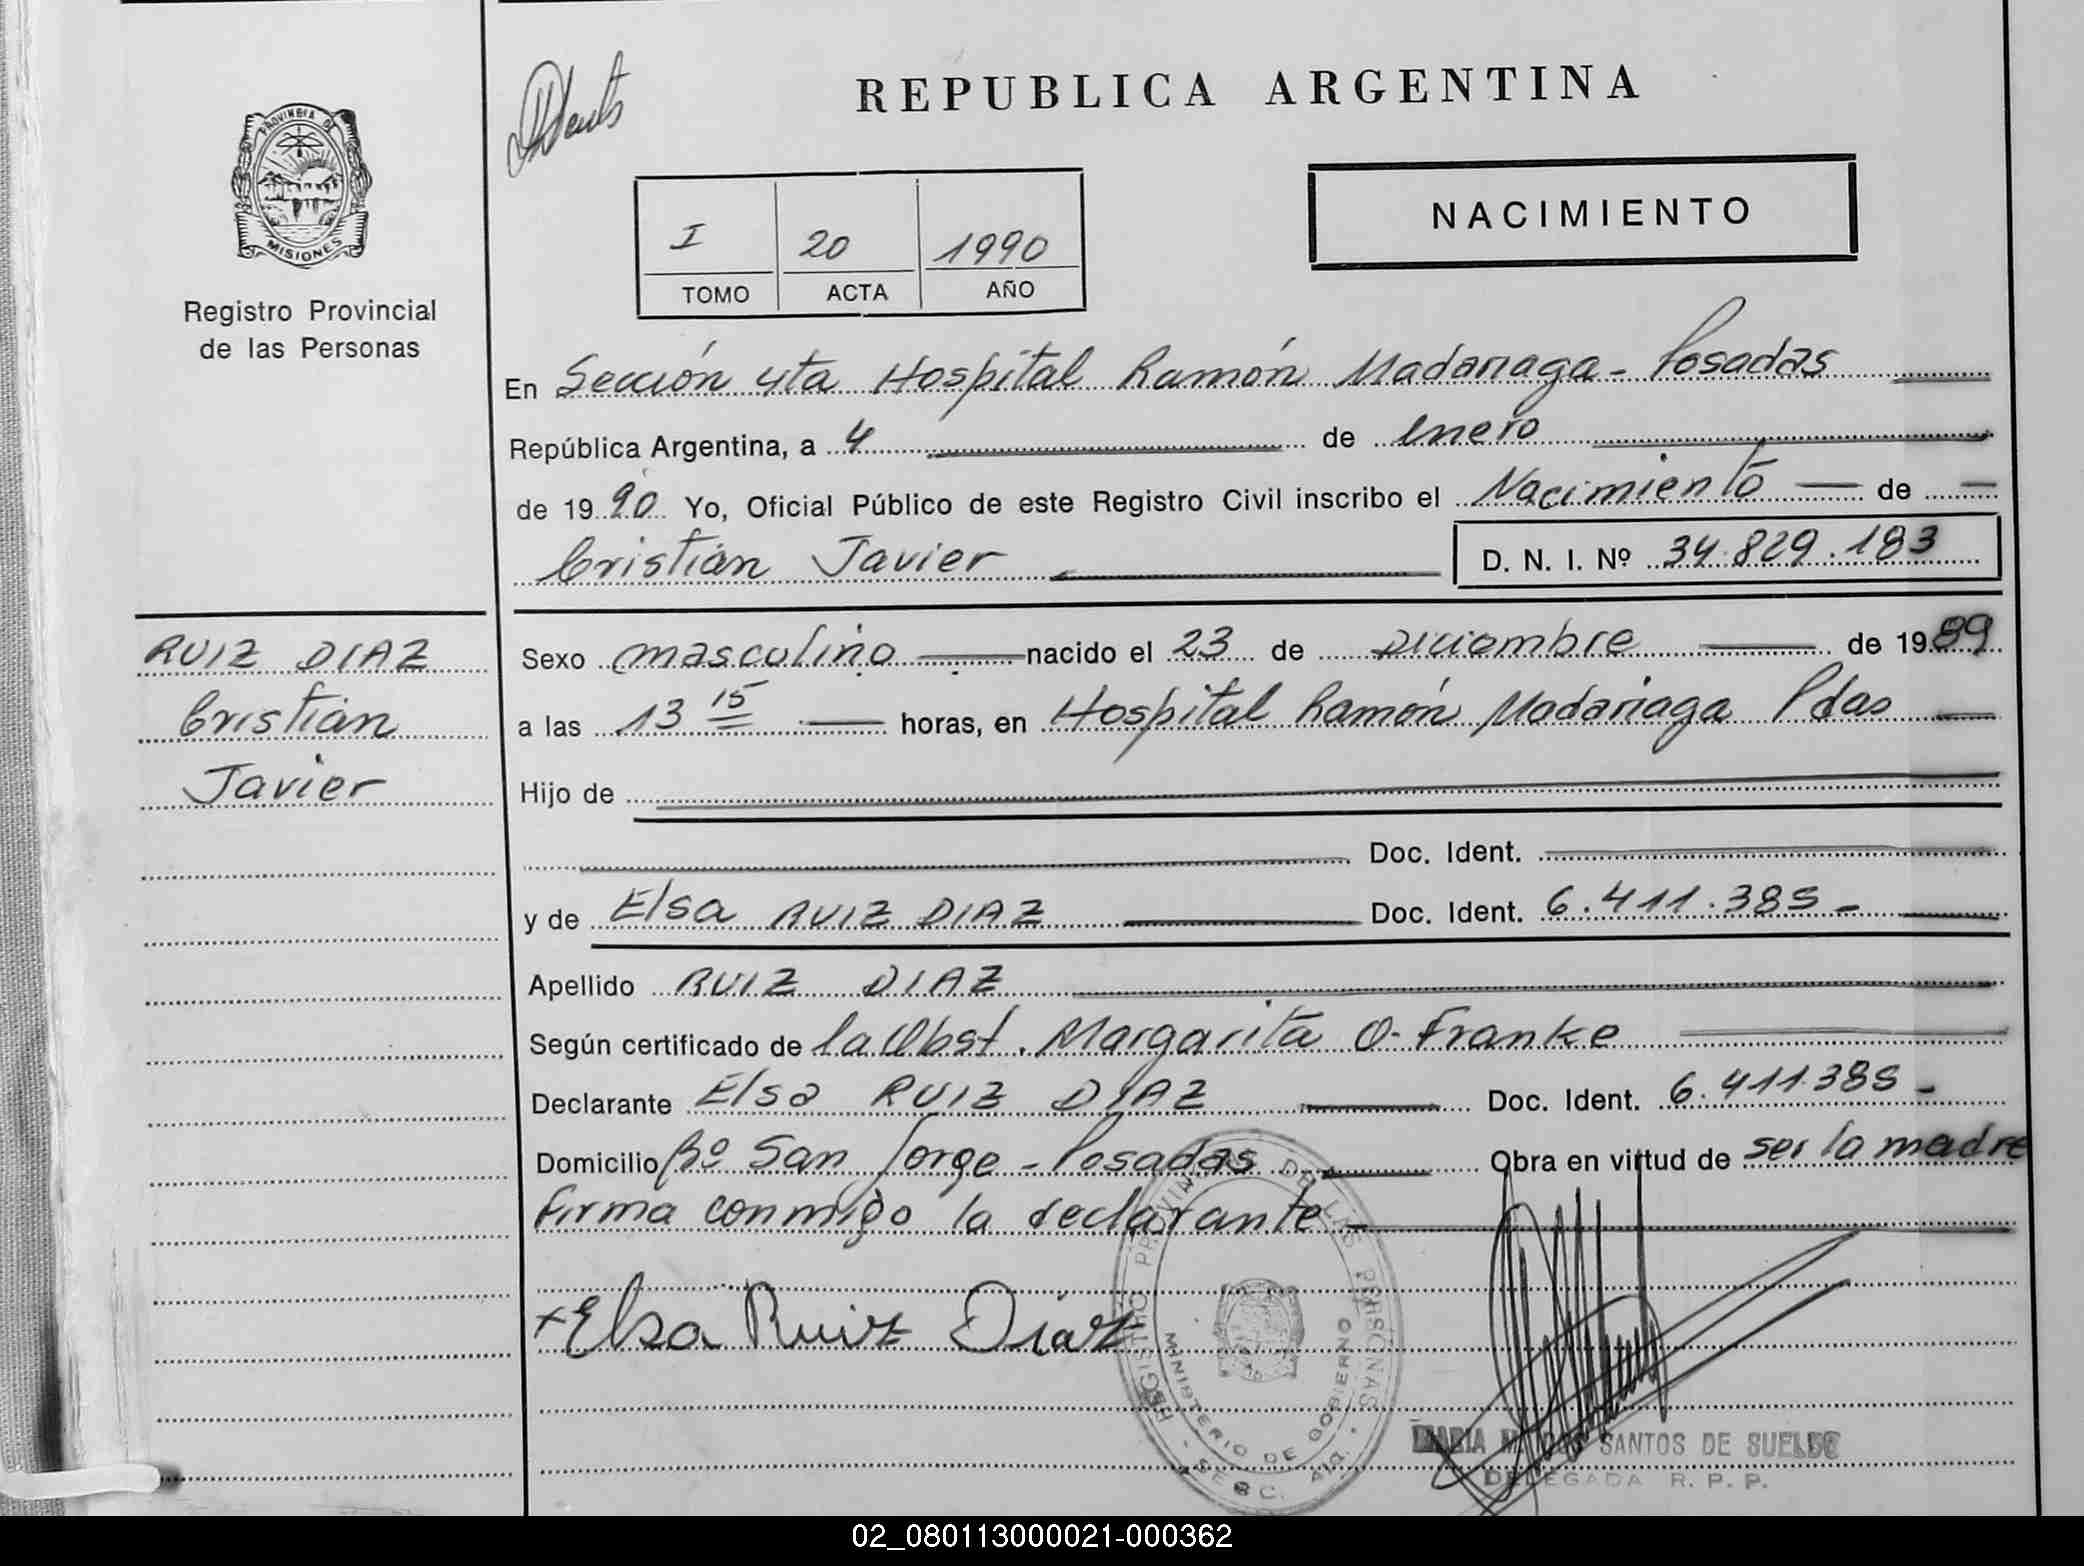 REPUBLICA ARGENTINA
PROVINCIA DE
MISIONES
Registro Provincial
de las Personas
I 20 1990
TOMO ACTA AÑO
NACIMIENTO
En Sección 4ta Hospital Ramón Madariaga - Posadas
República Argentina, a 4 de enero
de 1990 Yo, Oficial Público de este Registro Civil inscribo el Nacimiento de
Cristian Javier D. N. I. Nº 34.829.183
RUIZ DIAZ
Cristian
Javier
Sexo masculino nacido el 23 de Diciembre de 1989
a las 13 15 horas, en Hospital Ramón Madariaga Pdas
Hijo de
Doc. Ident.
y de Elsa RUIZ DIAZ Doc. Ident. 6.411.385-
Apellido RUIZ DIAZ
Según certificado de la Obst. Margarita O. Franke
Declarante Elsa RUIZ DIAZ Doc. Ident. 6.411.385-
Domicilio Bº San Jorge - Posadas Obra en virtud de ser la madre
firma conmigo la declarante -
x Elsa Ruiz Diaz
REGISTRO PROVINCIAL DE LAS PERSONAS - SECC. 4ta. -
MINISTERIO DE GOBIERNO
MARIA SANTOS DE
DELEGADA R. P. P.
02_080113000021-000362